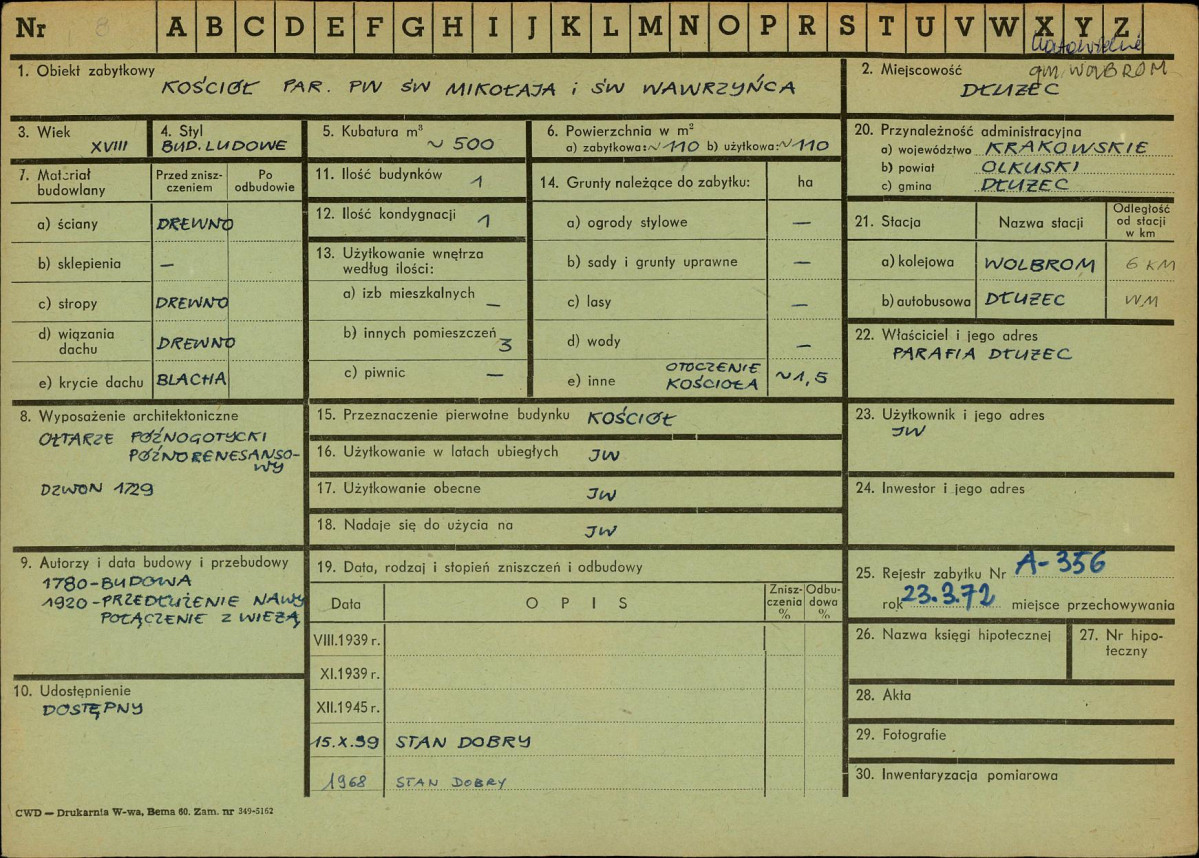 Nr 8 A B C D E F G H I J K L M N O P R S T U V W X Y Z
1. Obiekt zabytkowy
KOŚCIÓŁ PAR. PW ŚW MIKOŁAJA i ŚW WAWRZYŃCA
2. Miejscowość
gm. WOLBROM
DŁUŻEC
3. Wiek
XVIII
4. Styl
BUD. LUDOWE
5. Kubatura m³
~ 500
6. Powierzchnia w m²
a) zabytkowa: ~110 b) użytkowa: ~110
7. Materiał budowlany
Przed zniszczeniem
Po odbudowie
a) ściany DREWNO
b) sklepienia –
c) stropy DREWNO
d) wiązania dachu DREWNO
e) krycie dachu BLACHA
8. Wyposażenie architektoniczne
OŁTARZE PÓŹNOGOTYCKI
PÓŹNORENESANSO-
WY
DZWON 1729
9. Autorzy i data budowy i przebudowy
1780 - BUDOWA
1920 - PRZEDŁUŻENIE NAWY
POŁĄCZENIE Z WIEŻĄ
10. Udostępnienie
DOSTĘPNY
11. Ilość budynków 1
12. Ilość kondygnacji 1
13. Użytkowanie wnętrza
według ilości:
a) izb mieszkalnych –
b) innych pomieszczeń 3
c) piwnic –
14. Grunty należące do zabytku: ha
a) ogrody stylowe –
b) sady i grunty uprawne –
c) lasy –
d) wody –
e) inne OTOCZENIE KOŚCIOŁA ~1,5
15. Przeznaczenie pierwotne budynku KOŚCIÓŁ
16. Użytkowanie w latach ubiegłych JW
17. Użytkowanie obecne JW
18. Nadaje się do użycia na JW
19. Data, rodzaj i stopień zniszczeń i odbudowy
Data
OPIS
Znisz-
czenia
%
Odbu-
dowa
%
VIII.1939 r.
XI.1939 r.
XII.1945 r.
15.X.59 STAN DOBRY
1968 STAN DOBRY
20. Przynależność administracyjna
a) województwo KRAKOWSKIE
b) powiat OLKUSKI
c) gmina DŁUŻEC
21. Stacja
Nazwa stacji
Odległość
od stacji
w km
a) kolejowa WOLBROM 6 KM
b) autobusowa DŁUŻEC WM
22. Właściciel i jego adres
PARAFIA DŁUŻEC
23. Użytkownik i jego adres
JW
24. Inwestor i jego adres
25. Rejestr zabytku Nr A-356
rok 23.3.72 miejsce przechowywania
26. Nazwa księgi hipotecznej
27. Nr hipo-
teczny
28. Akta
29. Fotografie
30. Inwentaryzacja pomiarowa
CWD — Drukarnia W-wa, Bema 60. Zam. nr 349-5162